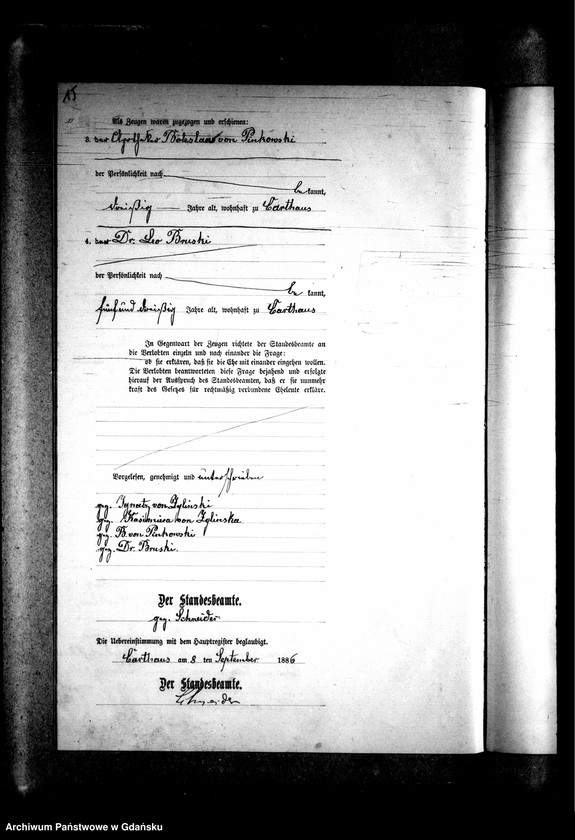 15
Als Zeugen waren zugezogen und erschienen:
3. der Apotheker Boleslaus von Pinkowski
der Persönlichkeit nach
be kannt,
dreißig Jahre alt, wohnhaft zu Carthaus
4. der Dr. Leo Bruski
der Persönlichkeit nach
be kannt,
fünf und dreißig Jahre alt, wohnhaft zu Carthaus
In Gegenwart der Zeugen richtete der Standesbeamte an
die Verlobten einzeln und nach einander die Frage:
ob sie erklären, daß sie die Ehe mit einander eingehen wollen.
Die Verlobten beantworteten diese Frage bejahend und erfolgte
hierauf der Ausspruch des Standesbeamten, daß er sie nunmehr
kraft des Gesetzes für rechtmäßig verbundene Eheleute erkläre.
Vorgelesen, genehmigt und unterschrieben
gez. Ignatz von Zglinski
gez. Kasimira von Zglinska
gez. B. von Pinkowski
gez. Dr. Bruski.
Der Standesbeamte.
gez. Schneider
Die Uebereinstimmung mit dem Hauptregister beglaubigt.
Carthaus am 8 ten September 1886
Der Standesbeamte.
Schneider
Archiwum Państwowe w Gdańsku